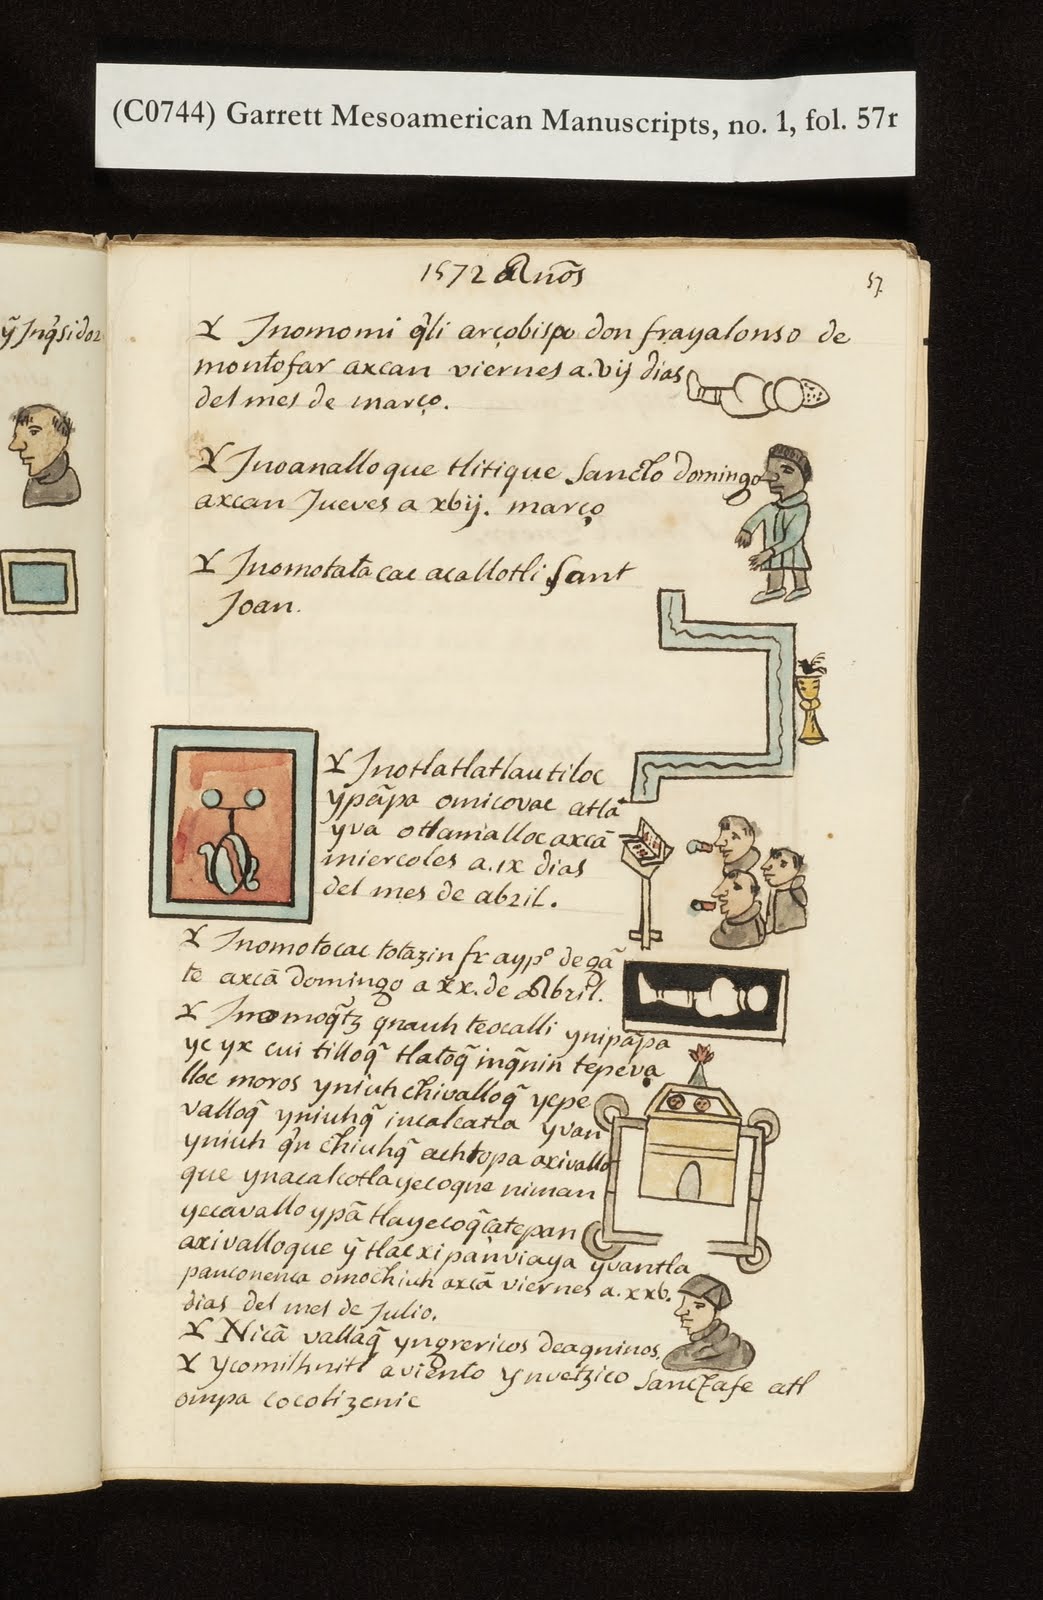 (C0744) Garrett Mesoamerican Manuscripts, no. 1, fol. 57r
1572 Anõs
57
ỹ Jnq̃sidor
Jnomomi q̃li arçobispo don fray alonso de
montofar axcan viernes a. vij dias
del mes de março.
Jnoanalloque tlitique Sancto domingo
axcan Jueves a xbij. março
Jnomotataca acallotli Sant
Joan.
Jnotlatlatlautiloc
ỹpãpa omicovac atlã
yva otlamalloc axcã
miercoles a. ix dias
del mes de abril.
Jnomotocac totazin fray pº de gã
te axcã domingo a xx. de Abril.
Jnomoq̃tz quauhteocalli ynipãpa
yc yx cui tilloq̃ tlatoq̃ inq̃nin tepeva
lloc moros yniuh chivalloq̃ ycpe
valloq̃ yniuhq̃ incalcatca yvan
yniuh q̃n chiuhq̃ achtopa axivallo
que ynacalcotlayecoque niman
yecavallo ypã tlayecoq̃ çatepan
axivalloque ỹ tlacxipanviaya yvantla
panconenca omochiuh axcã viernes a. xxb.
dias del mes de Julio.
Nicã vallaq̃ yngrericos deagninos
ycomilhuitl aviento ynvetzico Sanctafe atl
ompa cocolizcnic